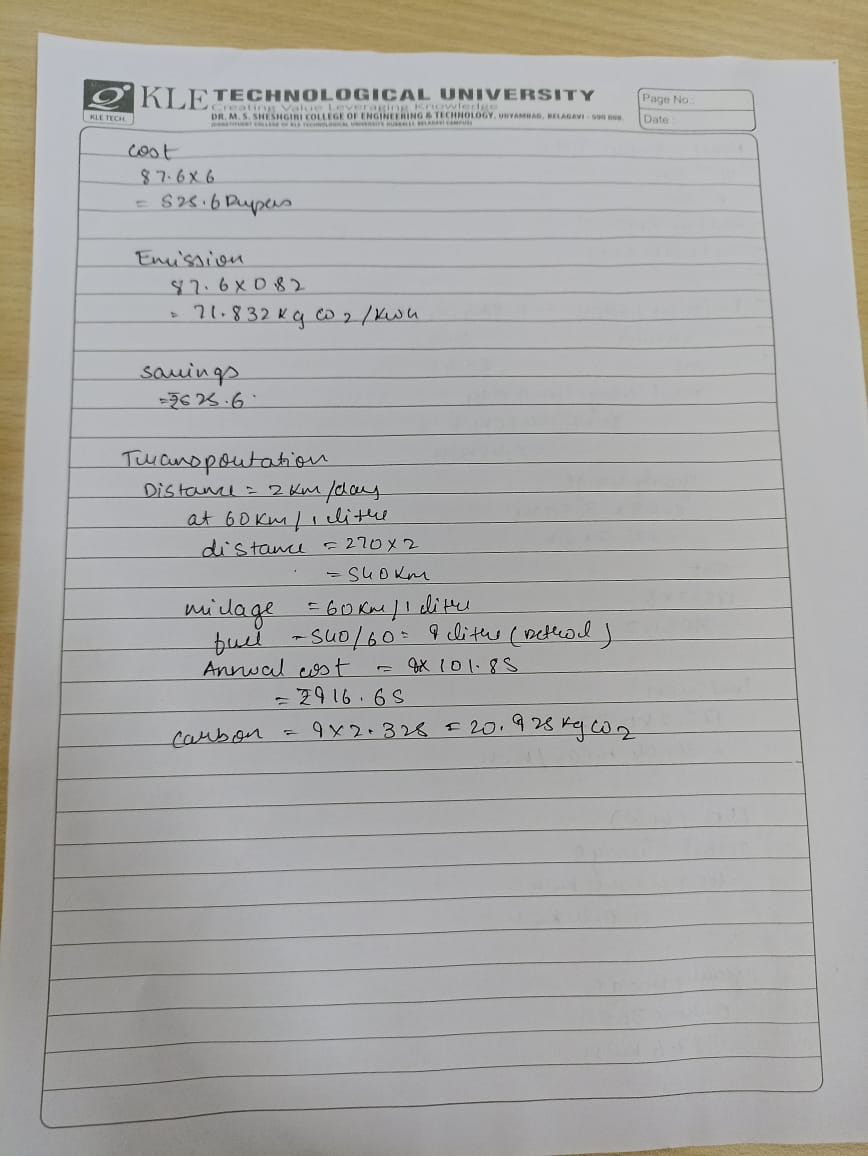 KLE TECHNOLOGICAL UNIVERSITY
Creating Value Leveraging Knowledge
KLE TECH.
DR. M. S. SHESHGIRI COLLEGE OF ENGINEERING & TECHNOLOGY, UDYAMBAG, BELAGAVI - 590 008.
Page No.:
Date :
cost
87.6 x 6
= 525.6 Rupees
Emission
87.6 x 0.82
= 71.832 kg CO2/kwh
savings
= ₹525.6
Transportation
Distance = 2 km/day
at 60 km/1 litre
distance = 270 x 2
= 540 km
milage = 60 km/1 litre
fuel = 540/60 = 9 litre (petrol)
Annual cost = 9 x 101.85
= ₹916.65
carbon = 9 x 2.325 = 20.925 kg CO2